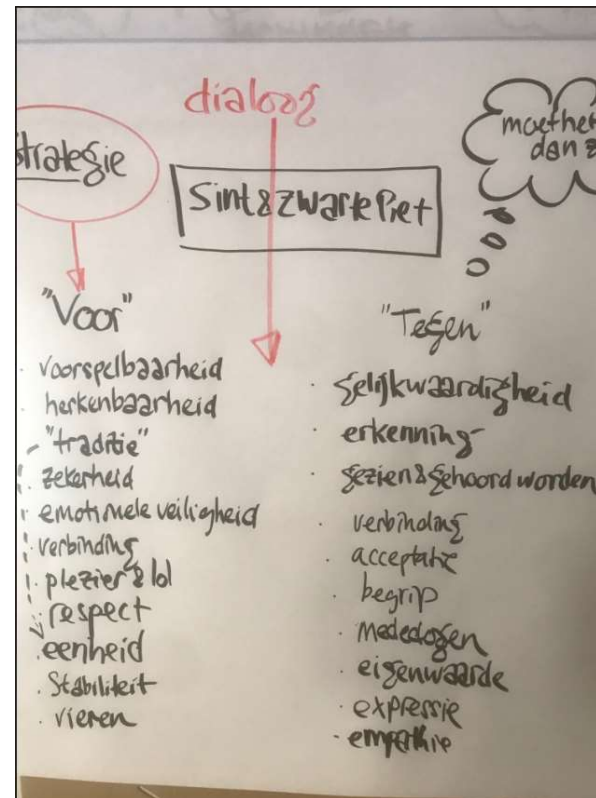 dialoog
strategie
moet het
dan z
Sint & zwarte Piet
"Voor"
· voorspelbaarheid
· herkenbaarheid
- "traditie"
· zekerheid
· emotionele veiligheid
· verbinding
· plezier & lol
· respect
· eenheid
· stabiliteit
· vieren
"Tegen"
· gelijkwaardigheid
· erkenning
· gezien & gehoord worden
· verbinding
· acceptatie
· begrip
· mededogen
· eigenwaarde
· expressie
· empathie